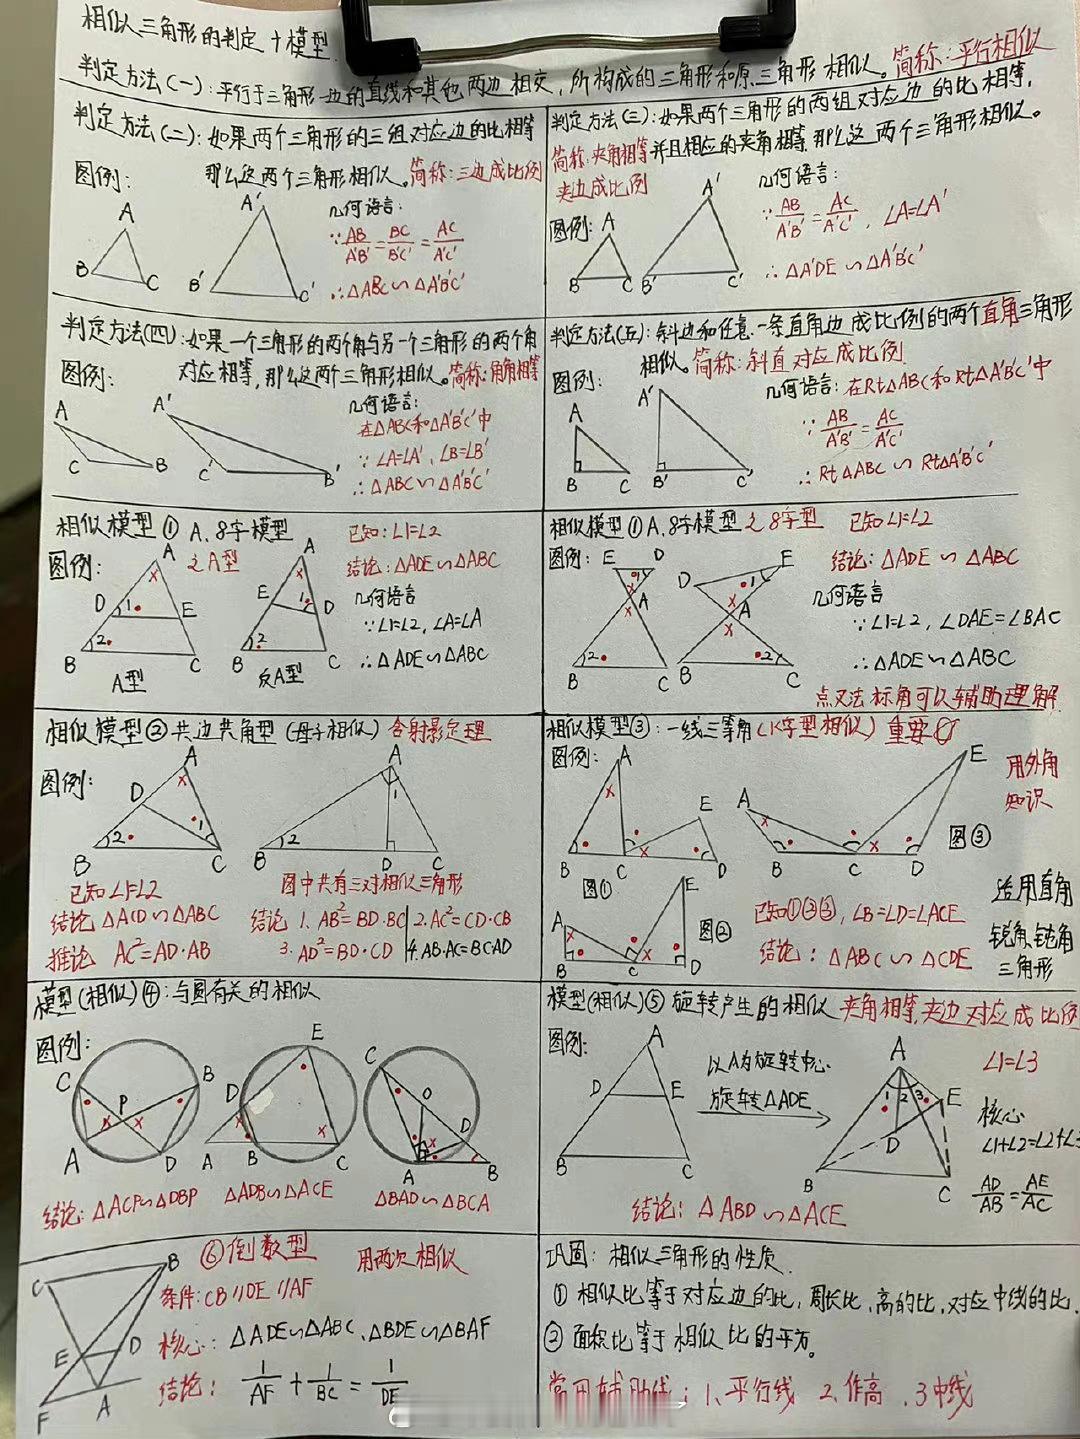 相似三角形的判定+模型
判定方法(一):平行于三角形一边的直线和其他两边相交,所构成的三角形和原三角形相似。简称:平行相似
判定方法(二):如果两个三角形的三组对应边的比相等
那么这两个三角形相似。简称:三边成比例
图例:
A
B
C
A'
B'
C'
几何语言:
∵AB/A'B'=BC/B'C'=AC/A'C'
∴△ABC∽△A'B'C'
判定方法(三):如果两个三角形的两组对应边的比相等,
简称:夹角相等 并且相应的夹角相等,那么这两个三角形相似。
夹边成比例
图例:
A
B
C
A'
B'
C'
几何语言:
∵AB/A'B'=AC/A'C',∠A=∠A'
∴△A'DE∽△A'B'C'
判定方法(四):如果一个三角形的两个角与另一个三角形的两个角
对应相等,那么这两个三角形相似。简称:角角相等
图例:
A
C
B
A'
C'
B'
几何语言:
在△ABC和△A'B'C'中
∵∠A=∠A',∠B=∠B'
∴△ABC∽△A'B'C'
判定方法(五):斜边和任意一条直角边成比例的两个直角三角形
相似。简称:斜直对应成比例
图例:
A
B
C
A'
B'
C'
几何语言:在Rt△ABC和Rt△A'B'C'中
∵AB/A'B'=AC/A'C'
∴Rt△ABC∽Rt△A'B'C'
相似模型①A、8字模型
之A型
图例:
A
D
1
E
2
B
C
A型
A
E
1
D
2
B
C
反A型
已知:∠1=∠2
结论:△ADE∽△ABC
几何语言
∵∠1=∠2,∠A=∠A
∴△ADE∽△ABC
相似模型①A、8字模型之8字型 已知∠1=∠2
图例:
E
D
1
A
2
B
C
D
E
1
A
2
B
C
结论:△ADE∽△ABC
几何语言
∵∠1=∠2,∠DAE=∠BAC
∴△ADE∽△ABC
点叉法标角可以辅助理解
相似模型②共边共角型(母子相似)含射影定理
图例:
A
D
2
1
B
C
A
1
2
B
D
C
已知∠1=∠2
结论△ACD∽△ABC
推论 AC²=AD·AB
图中共有三对相似三角形
结论 1. AB²=BD·BC 2. AC²=CD·CB
3. AD²=BD·CD 4. AB·AC=BC·AD
相似模型③:一线三等角(K字型相似)重要
图例:
A
E
B
C
D
图①
A
E
B
C
D
图③
用外角
知识
A
E
B
C
D
图②
已知①②③,∠B=∠D=∠ACE
结论:△ABC∽△CDE
适用直角
锐角、钝角
三角形
模型(相似)④:与圆有关的相似
图例:
C
B
P
A
D
E
D
A
B
C
C
O
D
A
B
结论:△ACP∽△DBP △ADB∽△ACE △BAD∽△BCA
模型(相似)⑤旋转产生的相似 夹角相等,夹边对应成比例
图例:
A
D
E
B
C
以A为旋转中心
旋转△ADE
A
1
2
3
E
D
B
C
∠1=∠3
核心
∠1+∠2=∠2+∠3
AD/AB=AE/AC
结论:△ABD∽△ACE
⑥倒数型 用两次相似
C
B
E
D
F
A
条件:CB//DE//AF
核心:△ADE∽△ABC、△BDE∽△BAF
结论:1/AF+1/BC=1/DE
巩固:相似三角形的性质
①相似比等于对应边的比,周长比,高的比,对应中线的比,
②面积比等于相似比的平方。
常用辅助线:1、平行线 2、作高、3中线